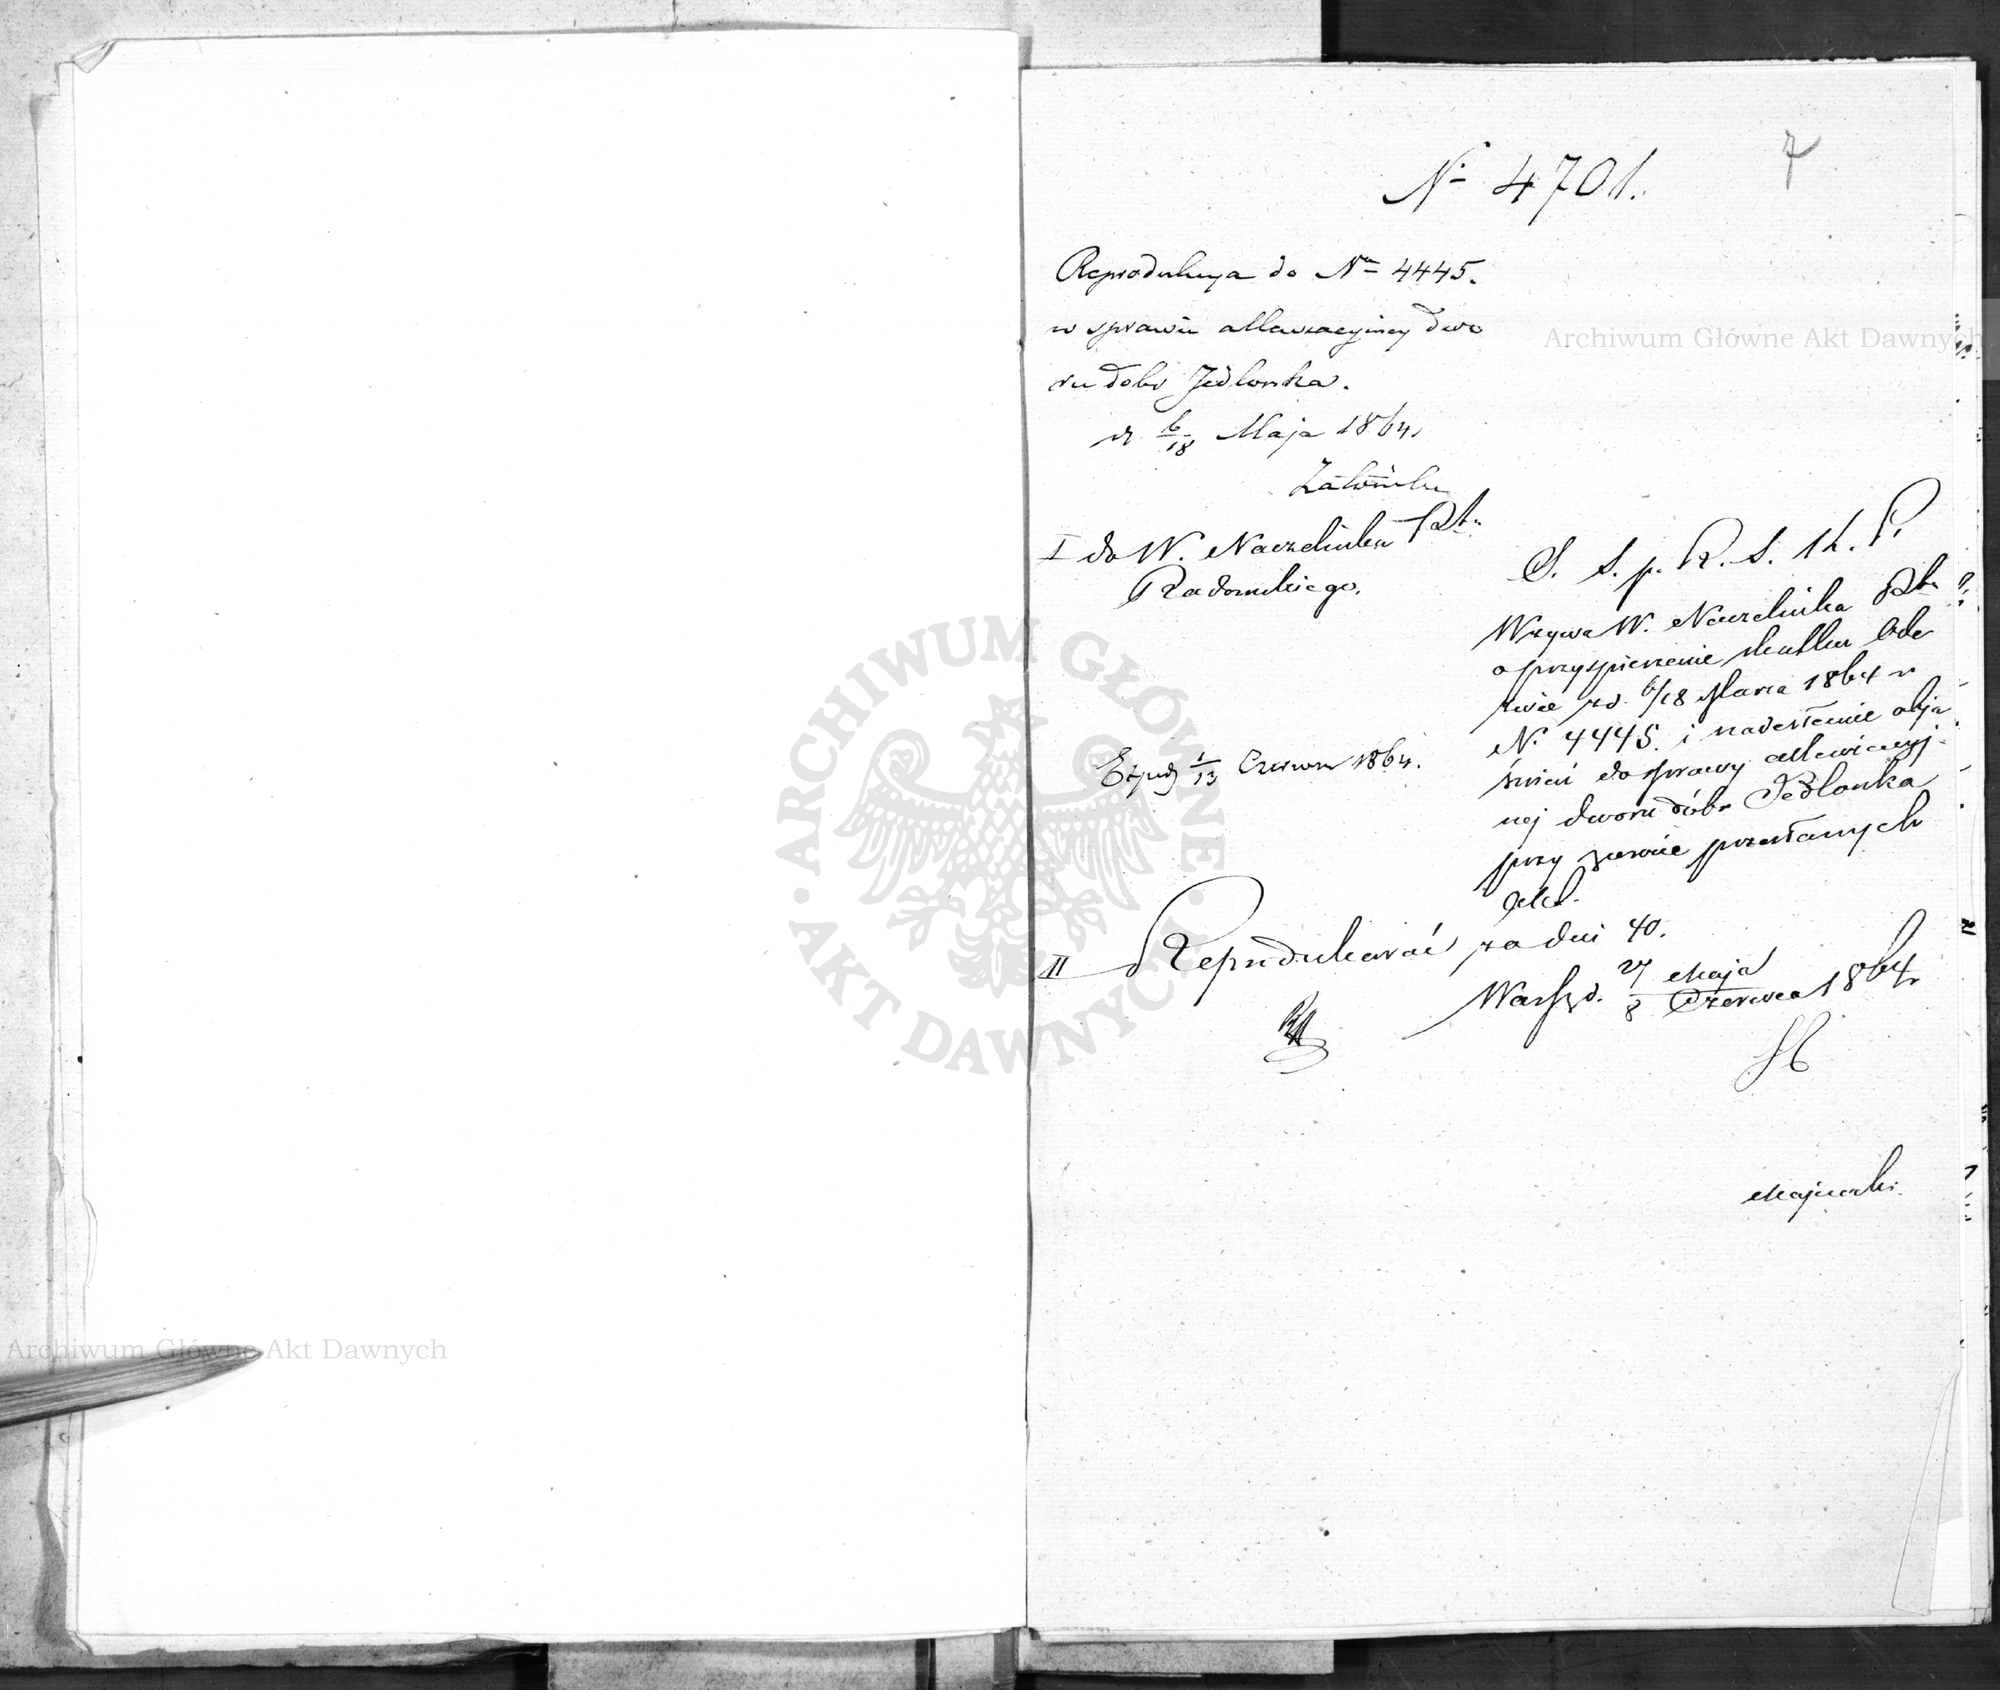 7
Nº 4701.
Reprodukcya do Nº 4445.
w sprawie allewiacyjnej dwo
ru dobr Jedlonka.
d 6/18 Maja 1864
I do W. Naczelnika Ptu
Radomskiego.
S. S. p. R. S. K. P.
Wzywa W. Naczelnika Ptu
o przyspieszenie skutku Ode
zwie z d. 6/18 Marca 1864 r
N. 4445. i nadesłanie obja
śnień do sprawy allewiacyj
nej dworu dóbr Jedlonka
przy zwrocie przesłanych
akt.
Exped 1/13 Czerwca 1864.
II Reprodukować za dni 40.
Warsz. d. 27 Maja / 8 Czerwca 1864 r
Majewski
Archiwum Główne Akt Dawnych
Archiwum Główne Akt Dawnych
ARCHIWUM GŁÓWNE · AKT DAWNYCH ·